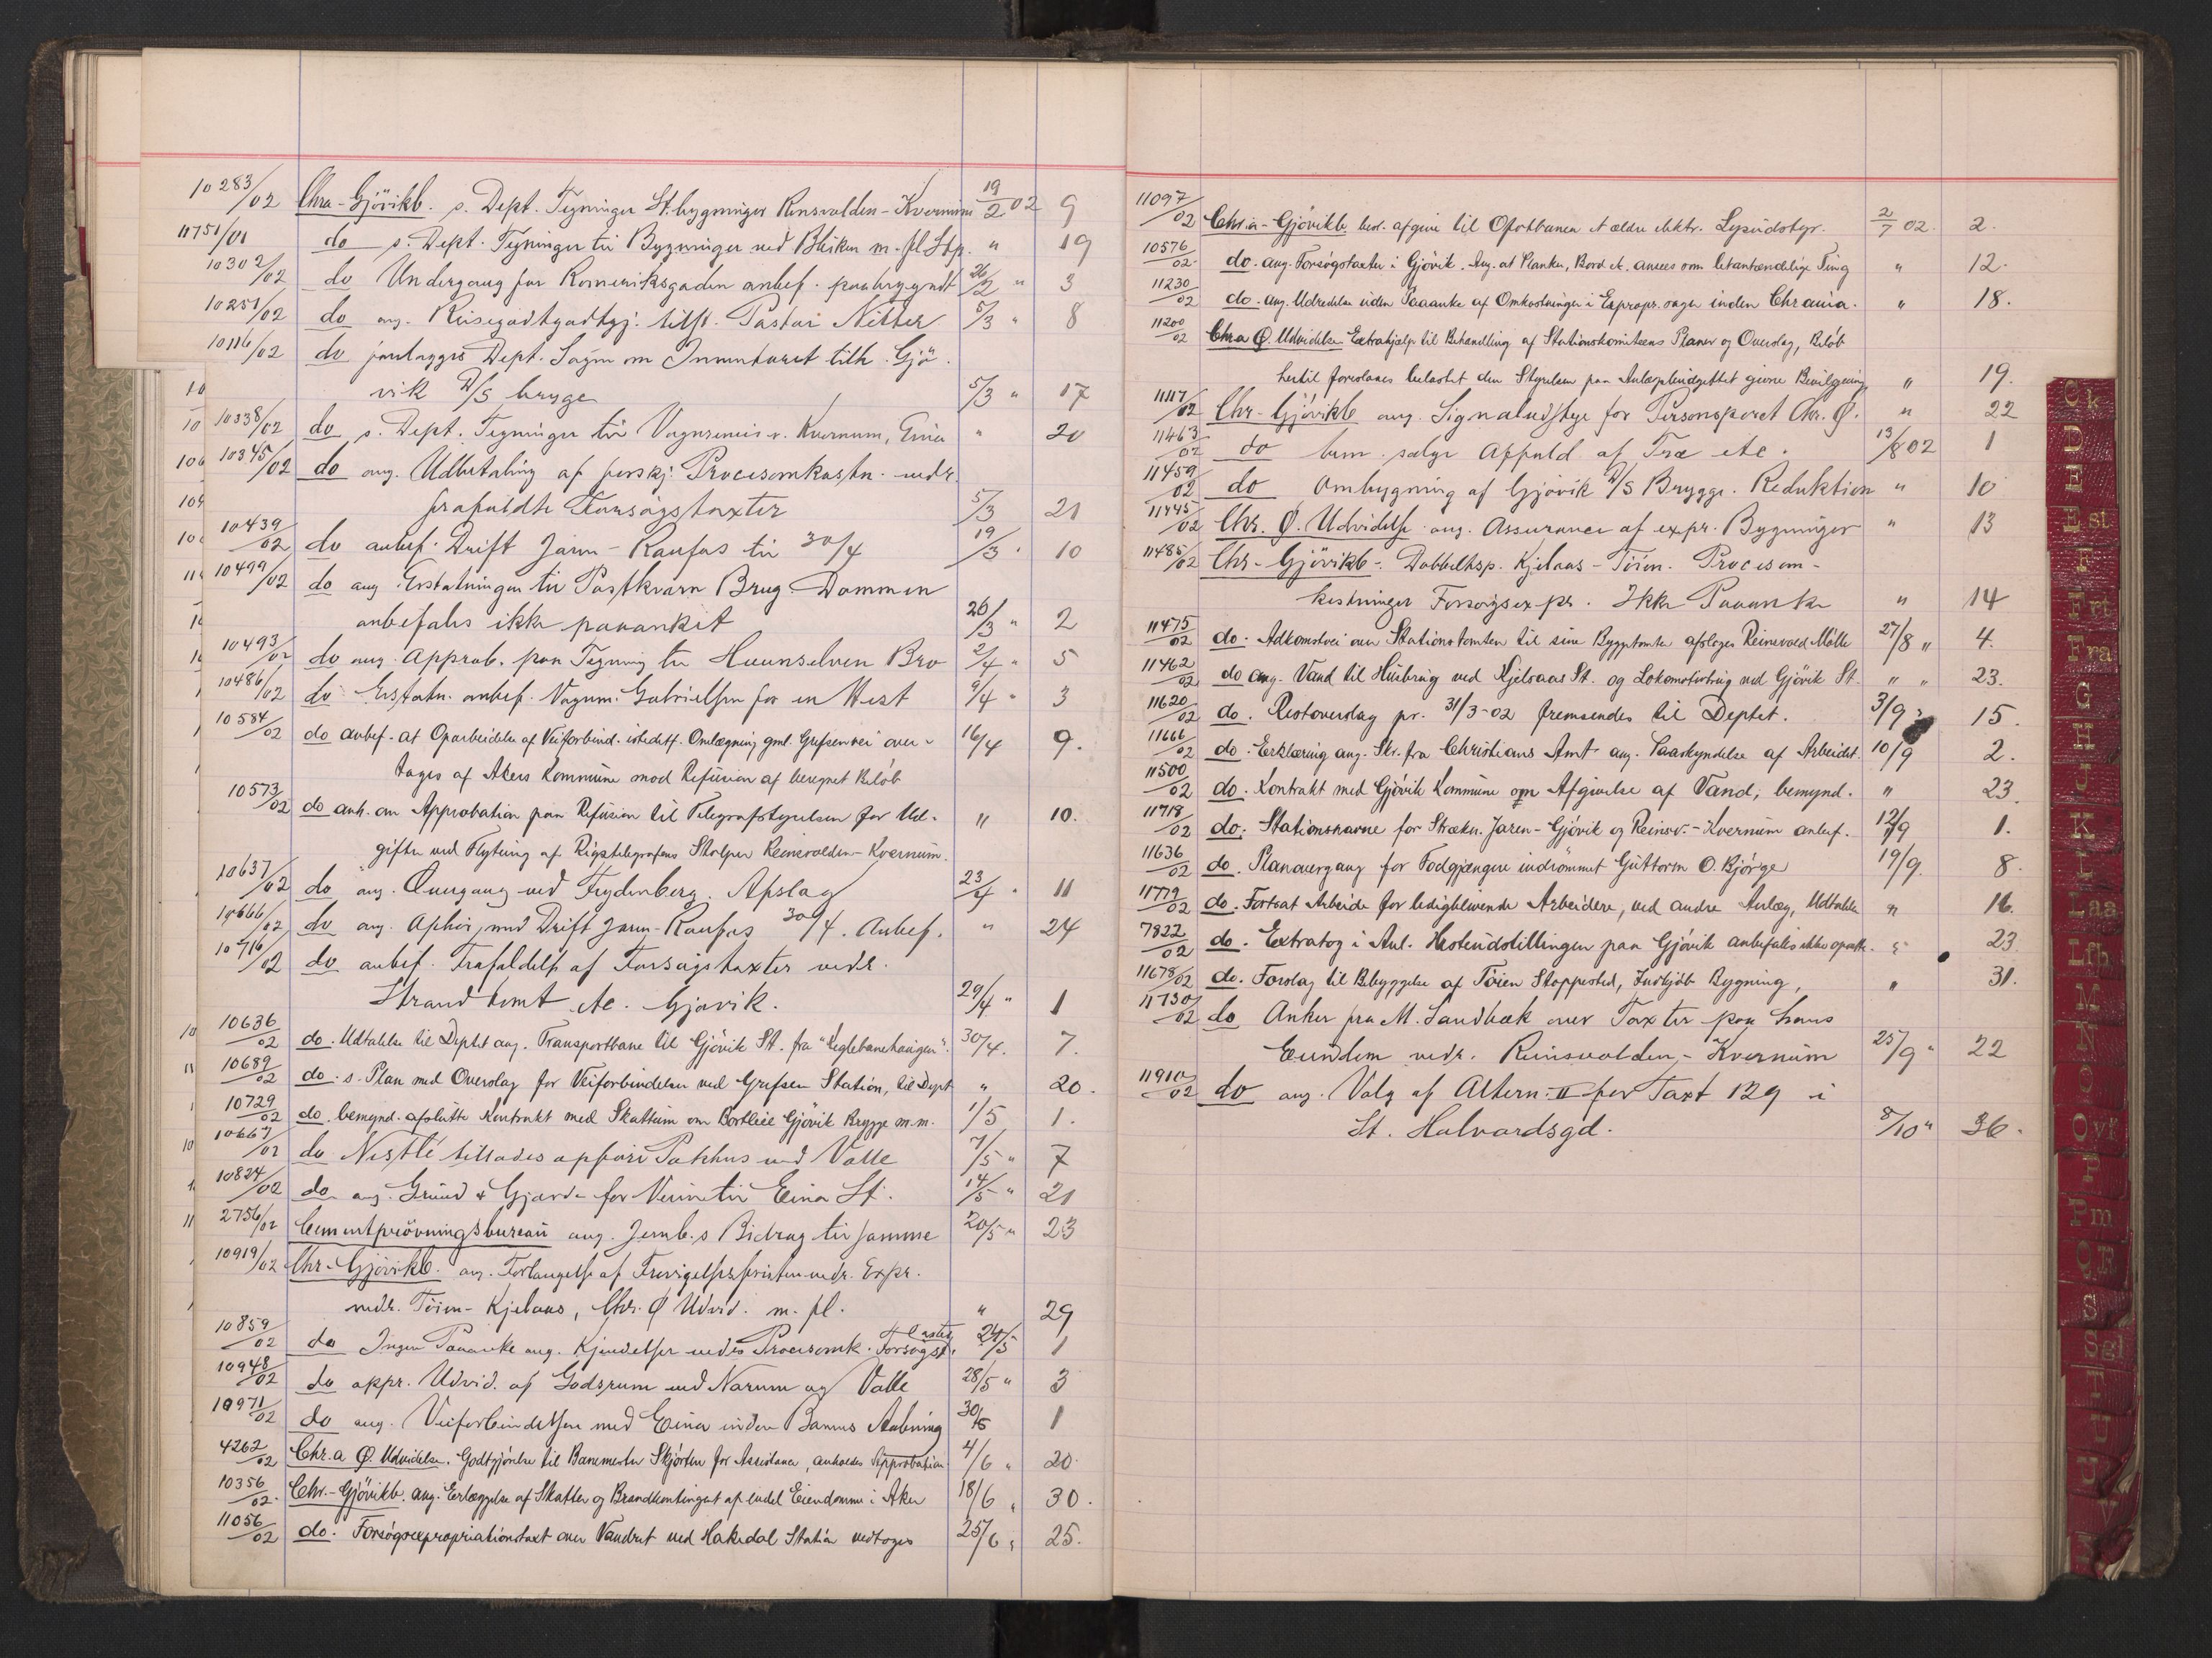 10283/02 Chra-Gjövikb. s. Dept. Tegninger St.bygninger Reinsvolden-Kvernum 19/2 02 9
11751/01 do s. Dept. Tegninger til Bygninger ved Bleiken m. fl. Stp. " 19
10302/02 do Undergang for Romeriksgaden anbef. paabegyndt 26/2 " 3
10251/02 do ang. Reisegodtgj. tilst. Pastor 5/3 " 8
10116/02 do forelægges Dept. Sagen om Inventaret tilh. Gjö-
vik D/S brygge 5/3 " 17
10338/02 do s. Dept. Tegninger til Vognremise v. Kvernum, Eina " 20
10345/02 do ang. Udbetaling af forskj. Procesomkostn. vedr.
frafaldte Forsøgstaxter 5/3 21
10439/02 do anbef. Drift Jaren-Raufos til 30/4 19/3 " 10
10499/02 do ang. Erstatningen til Brug. Dammen
anbefales ikke paaanket 26/3 " 2
10493/02 do ang. Approb. paa Tegning til Hunnselven Bro 2/4 " 5
10486/02 do Erstatn. anbef. Vognm. Gabrielsen for en Hest 9/4 " 3
10584/02 do anbef. at Oparbeidelse af Veiforbind. istedetf. Omlægning gml. Grefsenvei over-
tages af Akers Kommune mod Refusion af beregnet Beløb 16/4 9.
10573/02 do anh. om Approbation paa Refusion til Telegrafstyrelsen for Ud-
gifter ved Flytning af Rigstelegrafens Stolper Reinsvolden-Kvernum. " 10.
10637/02 do ang. Overgang ved Frydenberg. Afslag 23/4 " 11
10666/02 do ang. Ophör med Drift Jaren-Raufos 30/4. Anbef. " 24
10716/02 do anbef. Frafaldelse af Forsøgstaxter vedr.
Strandtomt etc. Gjövik. 29/4 " 1
10636/02 do. Udtalelse til Deptet ang. Transportbane til Gjövik St. fra "Teglebanehaugen". 30/4. 7.
10689/02 do. s. Plan med Overslag for Veiforbindelsen ved Grefsen Station, til Dept " 20.
10729/02 do. bemynd. afslutte Kontrakt med Skattum om Bortleie Gjövik Brygge m.m. 1/5 1.
10667/02 do Nestlé tillades opføre Pakhus ved Valle 7/5 " 7
10824/02 do ang. Grund & Gjærde for Veien til Eina St. 14/5 " 21
2756/02 Cementprövningsbureau ang. Jernb.s Bidrag til samme 20/5 " 23
10919/02 Chr-Gjövikb. ang. Forlængelse af vedr. Expr.
vedr. Töien-Kjelsaas, Chr. Ø Udvid. m. fl. " 29
10859/02 do Ingen Paaanke ang. Kjendelser vedr. Procesomk. Forsøgst. 24/5 1
10948/02 do appr. Udvid. af Godsrum ved Narum og Valle 28/5 " 3
10971/02 do ang. Veiforbindelsen med Eina inden Banens Aabning 30/5 1
4262/02 Chr.a Ø. Udvidelse. Godtgjörelse til Banemester Skjörten for Assistance, anholdes Approbation 4/6 " 20.
10356/02. Chr.-Gjövikb. ang. Erlæggelse af Skatter og Brandkontingent af endel Eiendomme i Aker 18/6 " 30.
11056/02 do. Forsøgsexpropriationstaxt over Vandret ved Hakedal Station vedtages 25/6 " 25.
11097/02 Chr.a-Gjövikb. besl. afgive til Ofotbanen et ældre elektr. Lysudstyr. 2/7 02. 2.
10576/02. do. ang. Forsøgstaxter i Gjövik. Ang. at Planker, Bord etc. ansees som letantændelige Ting " 12.
11230/02 do. ang. Udredelse uden Paaanke af Omkostninger i Expropr. sager inden Chr.ania. " 18.
11200/02 Chr.a Ø. Udvidelse Extrahjælp til Behandling af Stationskomiteens Planer og Overslag, Beløb
hertil foreslaaes belastet den Styrelsen paa Anlægsbudgettet givne Bevilgning " 19.
11117/02 Chr-Gjövikb ang. Signaludstyr for Personsporet Chr. Ø. " 22
11463/02 do bem. sælge Affald af Træ etc. 13/8 02 1
11459/02 do Ombygning af Gjövik D/S Brygge. Reduktion " 10
11445/02 Chr. Ø. Udvidelse ang. Assurance af expr. Bygninger " 13
11485/02 Chr-Gjövikb-. Dobbeltsp. Kjelsaas-Töien. Procesom-
kostninger Forsøgsexpr. Ikke Paaanke " 14
11475/02 do. Adkomstvei over Stationstomten til sine Byggetomter afslaaes Reinsvold Mölle 27/8 " 4.
11462/02 do ang. Vand til Husbrug ved Kjelsaas St. og Lokomotivbrug ved Gjövik St. " " 23.
11620/02 do. Restoverslag pr. 31/3-02 fremsendes til Deptet. 3/9 " 15.
11666/02 do. Erklæring ang. Skr. fra Christians Amt ang. Paaskyndelse af Arbeidet. 10/9 2.
11500/02 do. Kontrakt med Gjövik Kommune om Afgivelse af Vand, bemynd. " 23.
11718/02 do. Stationsnavne for Strækn. Jaren-Gjövik og Reinsv.-Kvernum anbef. 12/9 1.
11636/02 do. Planovergang for Fodgjængere indrömmet Guttorm O. Bjørge 19/9. 8.
11779/02 do. Fortsat Arbeide for ledigblivende Arbeidere, ved andre Anlæg, Udtalelse " 16.
7822/02 do. Extratog i Anl. Hesteudstillingen paa Gjövik anbefales ikke opsatte. " 23.
11678/02 do. Forslag til Bebyggelse af Töien Stoppested, Indkjöb Bygning, " 31.
11730/02 do Anker fra M. Sandbæk over Taxter paa hans
Eiendom vedr. Reinsvolden-Kvernum 25/9 " 22
11910/02 do ang. Valg af Altern: II for Taxt 129 i
St. Halvardsgd. 8/10 " 36.
Ck
D
E
Est
F
Frt
Fra
G
H
J
K
L
Laa
Lfb
M
N
O
Ovf
P
Pm
QR
S
Sgl
T
U
V